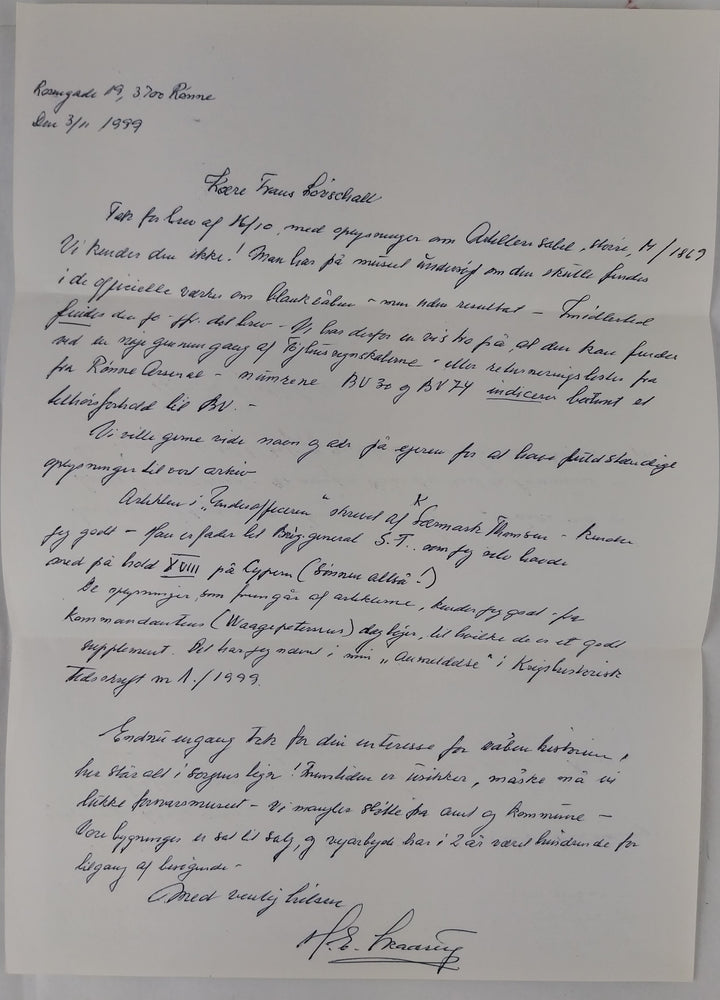 Rosengade 19, 3700 Rønne
Den 3/11 1999
Kære Frans Lorschall
Tak for brev af 16/10, med oplysninger om Artillerisabel, større, M/1869
Vi kender den ikke! Man har på museet undersøgt om den skulle findes
i de officielle værker om blankvåben - men uden resultat - Imidlertid
findes den jo - jfr. dit brev - Vi har derfor en vis tro på, at den kan findes
ved en nøje gennemgang af Tøjhusregnskaberne - eller returneringslister fra
fra Rønne Arsenal - numrene BV 30 og BV 74 indicerer bestemt et
tilhørsforhold til BV. -
Vi ville gerne vide navn og adr på ejeren for at have fuldstændige
oplysninger til vort arkiv
Artiklen i "Underofficeren" skrevet af K Sværmark Thomsen - kender
jeg godt - Han er fader til Brig.general S.T.. som jeg selv havde
med på hold XVIII på Cypern (Sønnen altså -!)
De oplysninger, som fremgår af artiklerne, kender jeg godt - fra
Kommandantens (Waagepetersens) dagbøger, til hvilke de er et godt
supplement. Det har jeg nævnt i min "Anmeldelse" i Krigshistorisk
Tidsskrift nr 1./1999.
Endnu engang tak for din interesse for våbenhistorien,
her står alt i sorgens tegn! Fremtiden er usikker, måske må vi
lukke forsvarsmuseet - Vi mangler støtte fra amt og kommune -
Vore bygninger er sat til salg, og vejarbejde har i 2 år været hindrende for
tilgang af besøgende -
Med venlig hilsen
H.E.